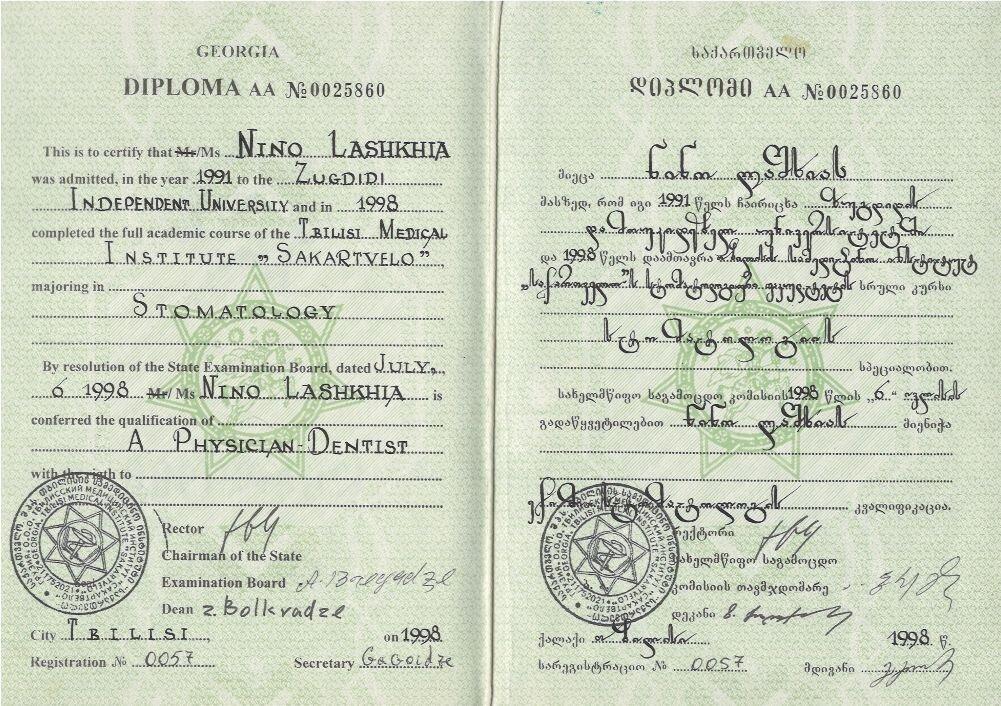 GEORGIA
DIPLOMA AA №0025860
This is to certify that Mr/Ms NINO LASHKHIA
was admitted, in the year 1991 to the ZUGDIDI
INDEPENDENT UNIVERSITY and in 1998
completed the full academic course of the TBILISI MEDICAL
INSTITUTE „SAKARTVELO”,
majoring in
STOMATOLOGY
By resolution of the State Examination Board, dated JULY
6 1998 Mr/ Ms NINO LASHKHIA is
conferred the qualification of
A PHYSICIAN-DENTIST
with the rigth to
Rector
Chairman of the State
Examination Board
Dean z. Bolkvadze
City TBILISI on 1998
Registration № 0057 Secretary Gagoidze
საქართველო
დიპლომი AA №0025860
მიეცა ნინო ლაშხიას
მასზედ, რომ იგი 1991 წელს ჩაირიცხა ზუგდიდის
დამოუკიდებელ უნივერსიტეტში
და 1998 წელს დაამთავრა თბილისის სამედიცინო ინსტიტუტ
„საქართველო”ს სტომატოლოგიური ფაკულტეტის სრული კურსი
სტომატოლოგიის
სპეციალობით.
სახელმწიფო საგამოცდო კომისიის 1998 წლის „6“ ივლისის
გადაწყვეტილებით ნინო ლაშხიას მიენიჭა
ექიმ სტომატოლოგის კვალიფიკაცია.
რექტორი
სახელმწიფო საგამოცდო
კომისიის თავმჯდომარე
დეკანი
ქალაქი თბილისი 1998 წ.
სარეგისტრაციო № 0057 მდივანი